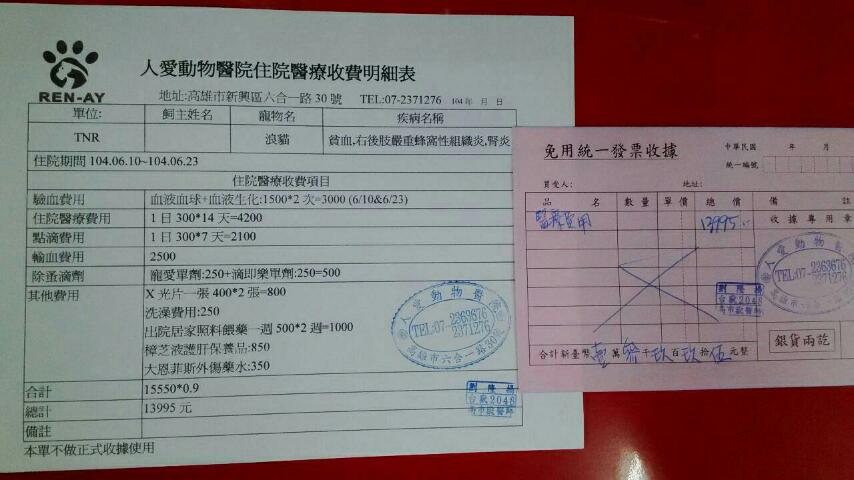 REN-AY
人愛動物醫院住院醫療收費明細表
地址:高雄市新興區六合一路30號 TEL:07-2371276 104年 月 日
單位: 飼主姓名 寵物名 疾病名稱
TNR 浪貓 貧血,右後肢嚴重蜂窩性組織炎,腎炎
住院期間 104.06.10~104.06.23
住院醫療收費項目
驗血費用 血液血球+血液生化:1500*2 次=3000 (6/10&6/23)
住院醫療費用 1日 300*14 天=4200
點滴費用 1日 300*7 天=2100
輸血費用 2500
除蚤滴劑 寵愛單劑:250+滴即樂單劑:250=500
其他費用 X光片一張 400*2 張=800
洗澡費用:250
出院居家照料餵藥一週 500*2 週=1000
樟芝液護肝保養品:850
大恩菲斯外傷藥水:350
合計 15550*0.9
總計 13995 元
備註
本單不做正式收據使用
人愛動物醫院
TEL:07-2363676
2371276
高雄市六合一路30號
劉隆揚
台獸2048
高市獸醫師
免用統一發票收據
中華民國 年 月
統一編號
買受人: 地址:
品名 數量 單價 總價 備註
醫療費用 13995
收據專用章
人愛動物醫
TEL:07-2363676
2371276
高雄市六合一路
劉隆揚
台獸2048
高市獸醫師
合計新臺幣 壹萬參千玖百玖拾伍元整
銀貨兩訖